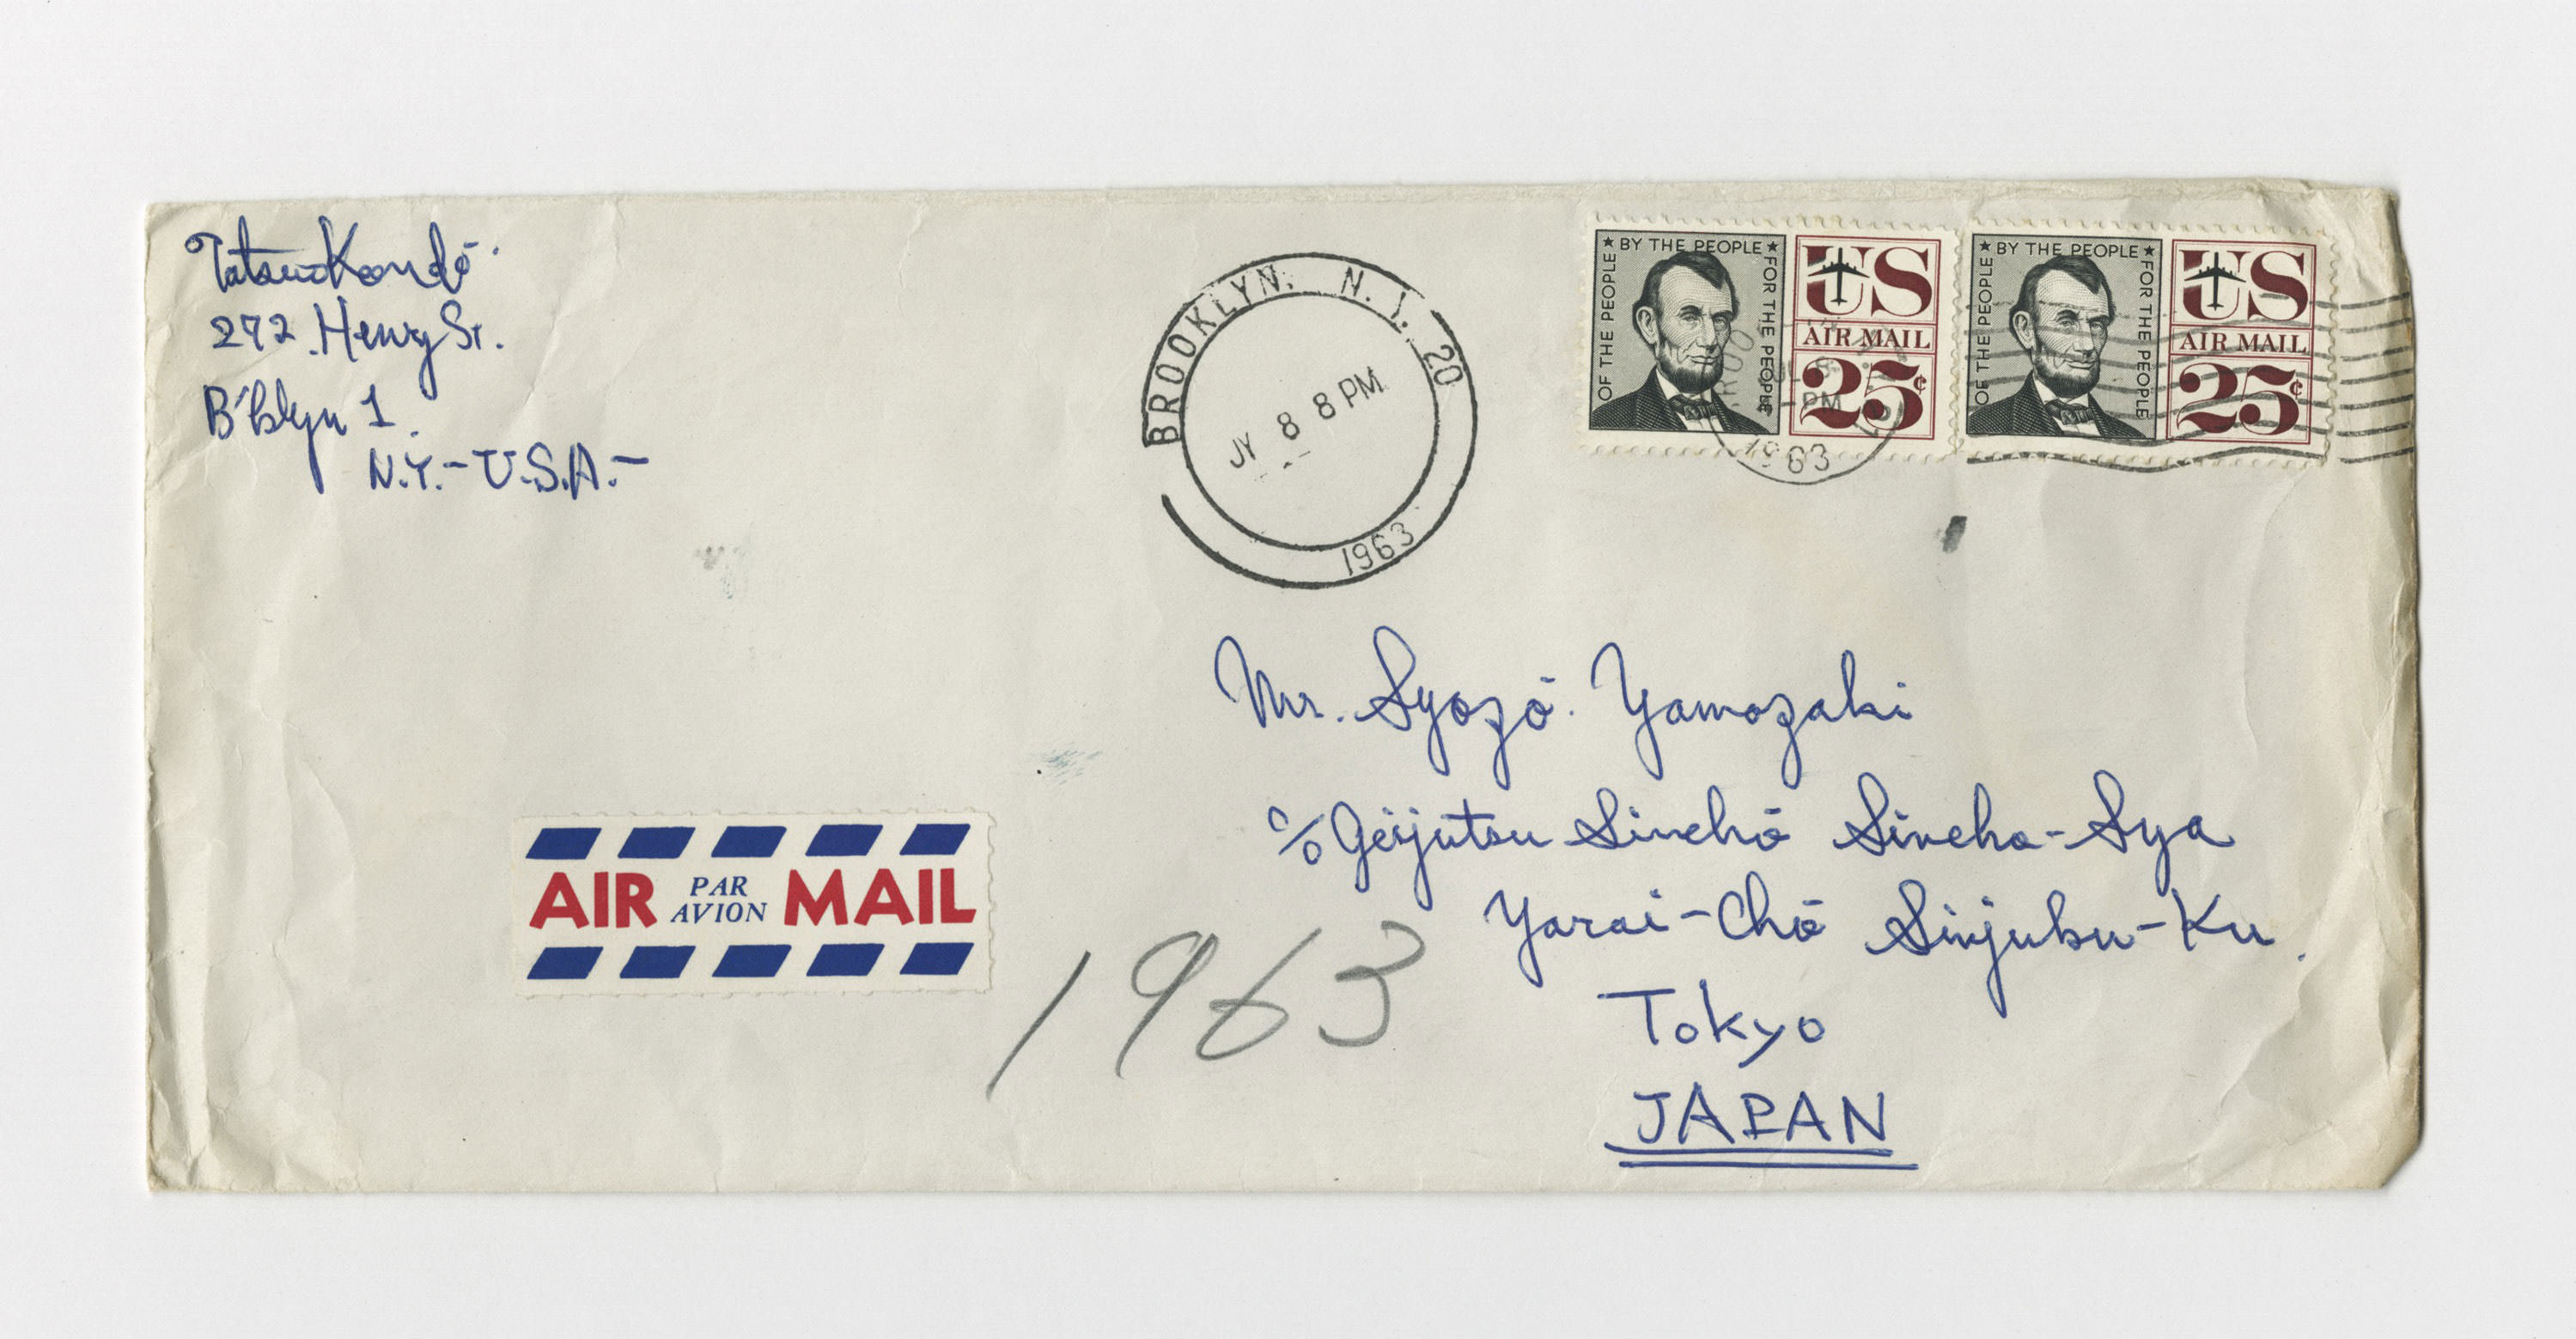 Tatsuo Kondō
272 Henry St.
B'klyn 1.
N.Y.-U.S.A.-
BROOKLYN, N.Y. 20
JY 8 8 PM
1963
OF THE PEOPLE ★ BY THE PEOPLE ★ FOR THE PEOPLE
US
AIR MAIL
25¢
OF THE PEOPLE ★ BY THE PEOPLE ★ FOR THE PEOPLE
US
AIR MAIL
25¢
PM
1963
Mr. Syozō. Yamazaki
c/o Geijutsu Sinchō Sincho-Sya
Yarai-Chō Sinjuku-Ku.
Tokyo
JAPAN
AIR PAR AVION MAIL
1963